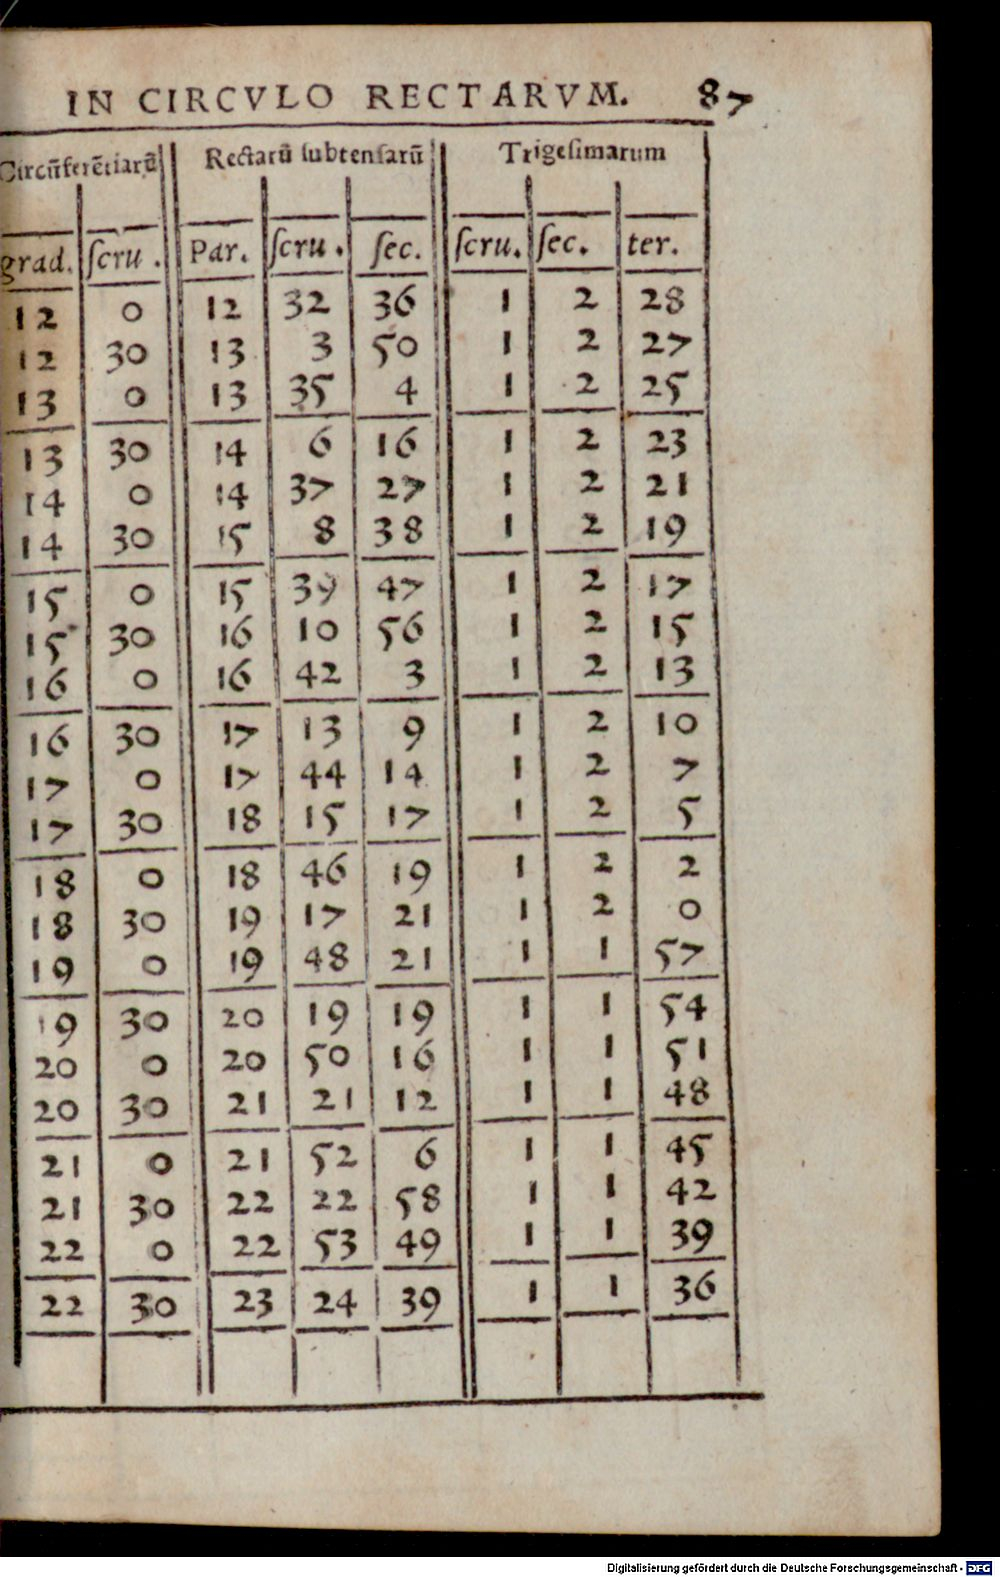 IN CIRCVLO RECTARVM. 87
Circũferẽtiarũ Rectarũ ſubtenſarũ Trigeſimarum
grad. ſcru. Par. ſcru. ſec. ſcru. ſec. ter.
12 0 12 32 36 1 2 28
12 30 13 3 50 1 2 27
13 0 13 35 4 1 2 25
13 30 14 6 16 1 2 23
14 0 14 37 27 1 2 21
14 30 15 8 38 1 2 19
15 0 15 39 47 1 2 17
15 30 16 10 56 1 2 15
16 0 16 42 3 1 2 13
16 30 17 13 9 1 2 10
17 0 17 44 14 1 2 7
17 30 18 15 17 1 2 5
18 0 18 46 19 1 2 2
18 30 19 17 21 1 2 0
19 0 19 48 21 1 1 57
19 30 20 19 19 1 1 54
20 0 20 50 16 1 1 51
20 30 21 21 12 1 1 48
21 0 21 52 6 1 1 45
21 30 22 22 58 1 1 42
22 0 22 53 49 1 1 39
22 30 23 24 39 1 1 36
Digitalisierung gefördert durch die Deutsche Forschungsgemeinschaft - DFG